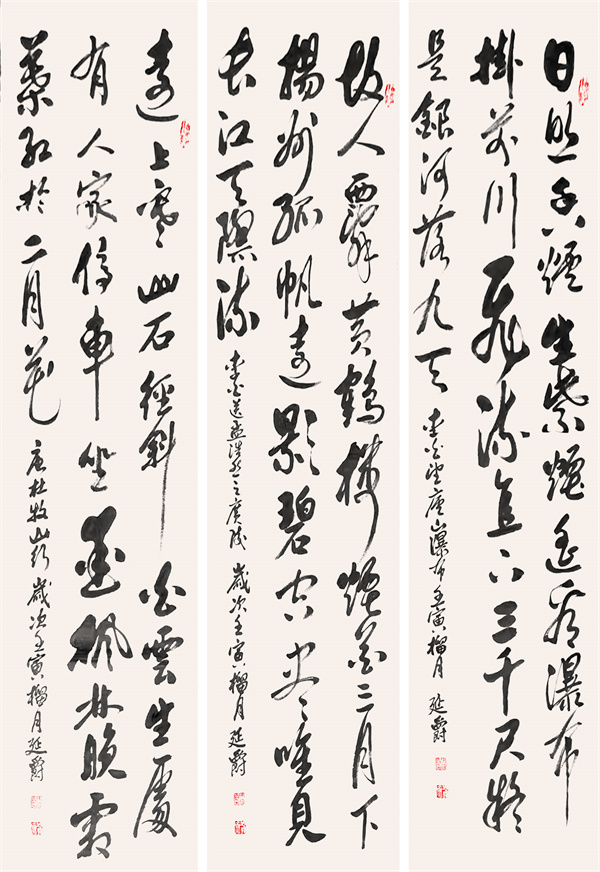 日照香爐生紫煙遙看瀑布
掛前川飛流直下三千尺疑
是銀河落九天 李白望廬山瀑布壬寅榴月 延爵
故人西辭黃鶴樓煙花三月下
揚州孤帆遠影碧空盡唯見
長江天際流 李白送孟浩然之廣陵 歲次壬寅榴月延爵
遠上寒山石徑斜白雲生處
有人家停車坐愛楓林晚霜
葉紅於二月花 唐杜牧山行歲次壬寅榴月延爵